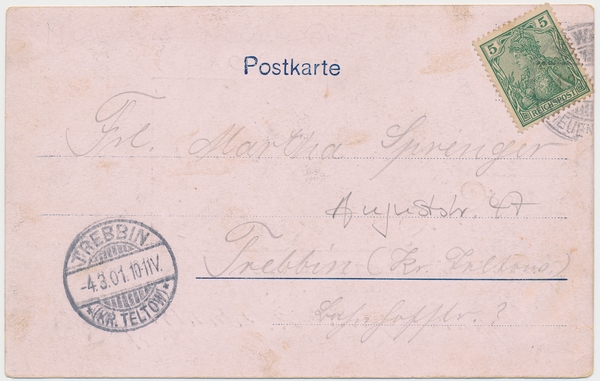 Postkarte
5 5
REICHSPOST
Frl. Martha Sprenger
Auguststr. 47
Trebbin (Kr. Teltow)
Bahnhofstr. ?
TREBBIN
-4.3.01.10-11V.
*(KR. TELTOW)*